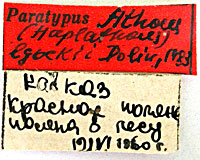 Paratypus Athous
(Haplathous)
Dolin, 1983
Кавказ
Красная поляна
поляна в лесу
19/VI 1960 г.